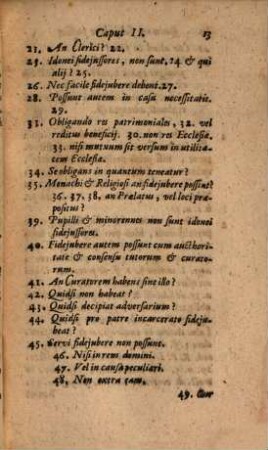 Caput II. 13
21. An Clerici? 22.
23. Idonei fidejussores, non sunt. 24 & qui
alij? 25.
26. Nec facile fidejubere debent. 27.
28. Possunt autem in casu necessitatis.
29.
31. Obligando res patrimoniales, 32. vel
reditus beneficij. 30. non res Ecclesiæ,
33. nisi mutuum sit versum in utilita-
tem Ecclesiæ.
34. Se obligans in quantum teneatur?
35. Monachi & Religiosi an fidejubere possint?
36. 37. 38, an Prælatus, vel loci præ-
positus?
39. Pupilli & minorennes non sunt idonei
fidejussores.
40. Fidejubere autem possunt cum authori-
tate & consensu tutorum & curato-
rum.
41. An Curatorem habens sine illo?
42. Quid si non habeat?
43. Quid si decipiat adversarium?
44. Quid si pro patre incarcerato fideju-
beat?
45. Servi fidejubere non possunt.
46. Nisi in rem domini.
47. Vel in causa peculiari.
48. Non extra eam.
49. Cur